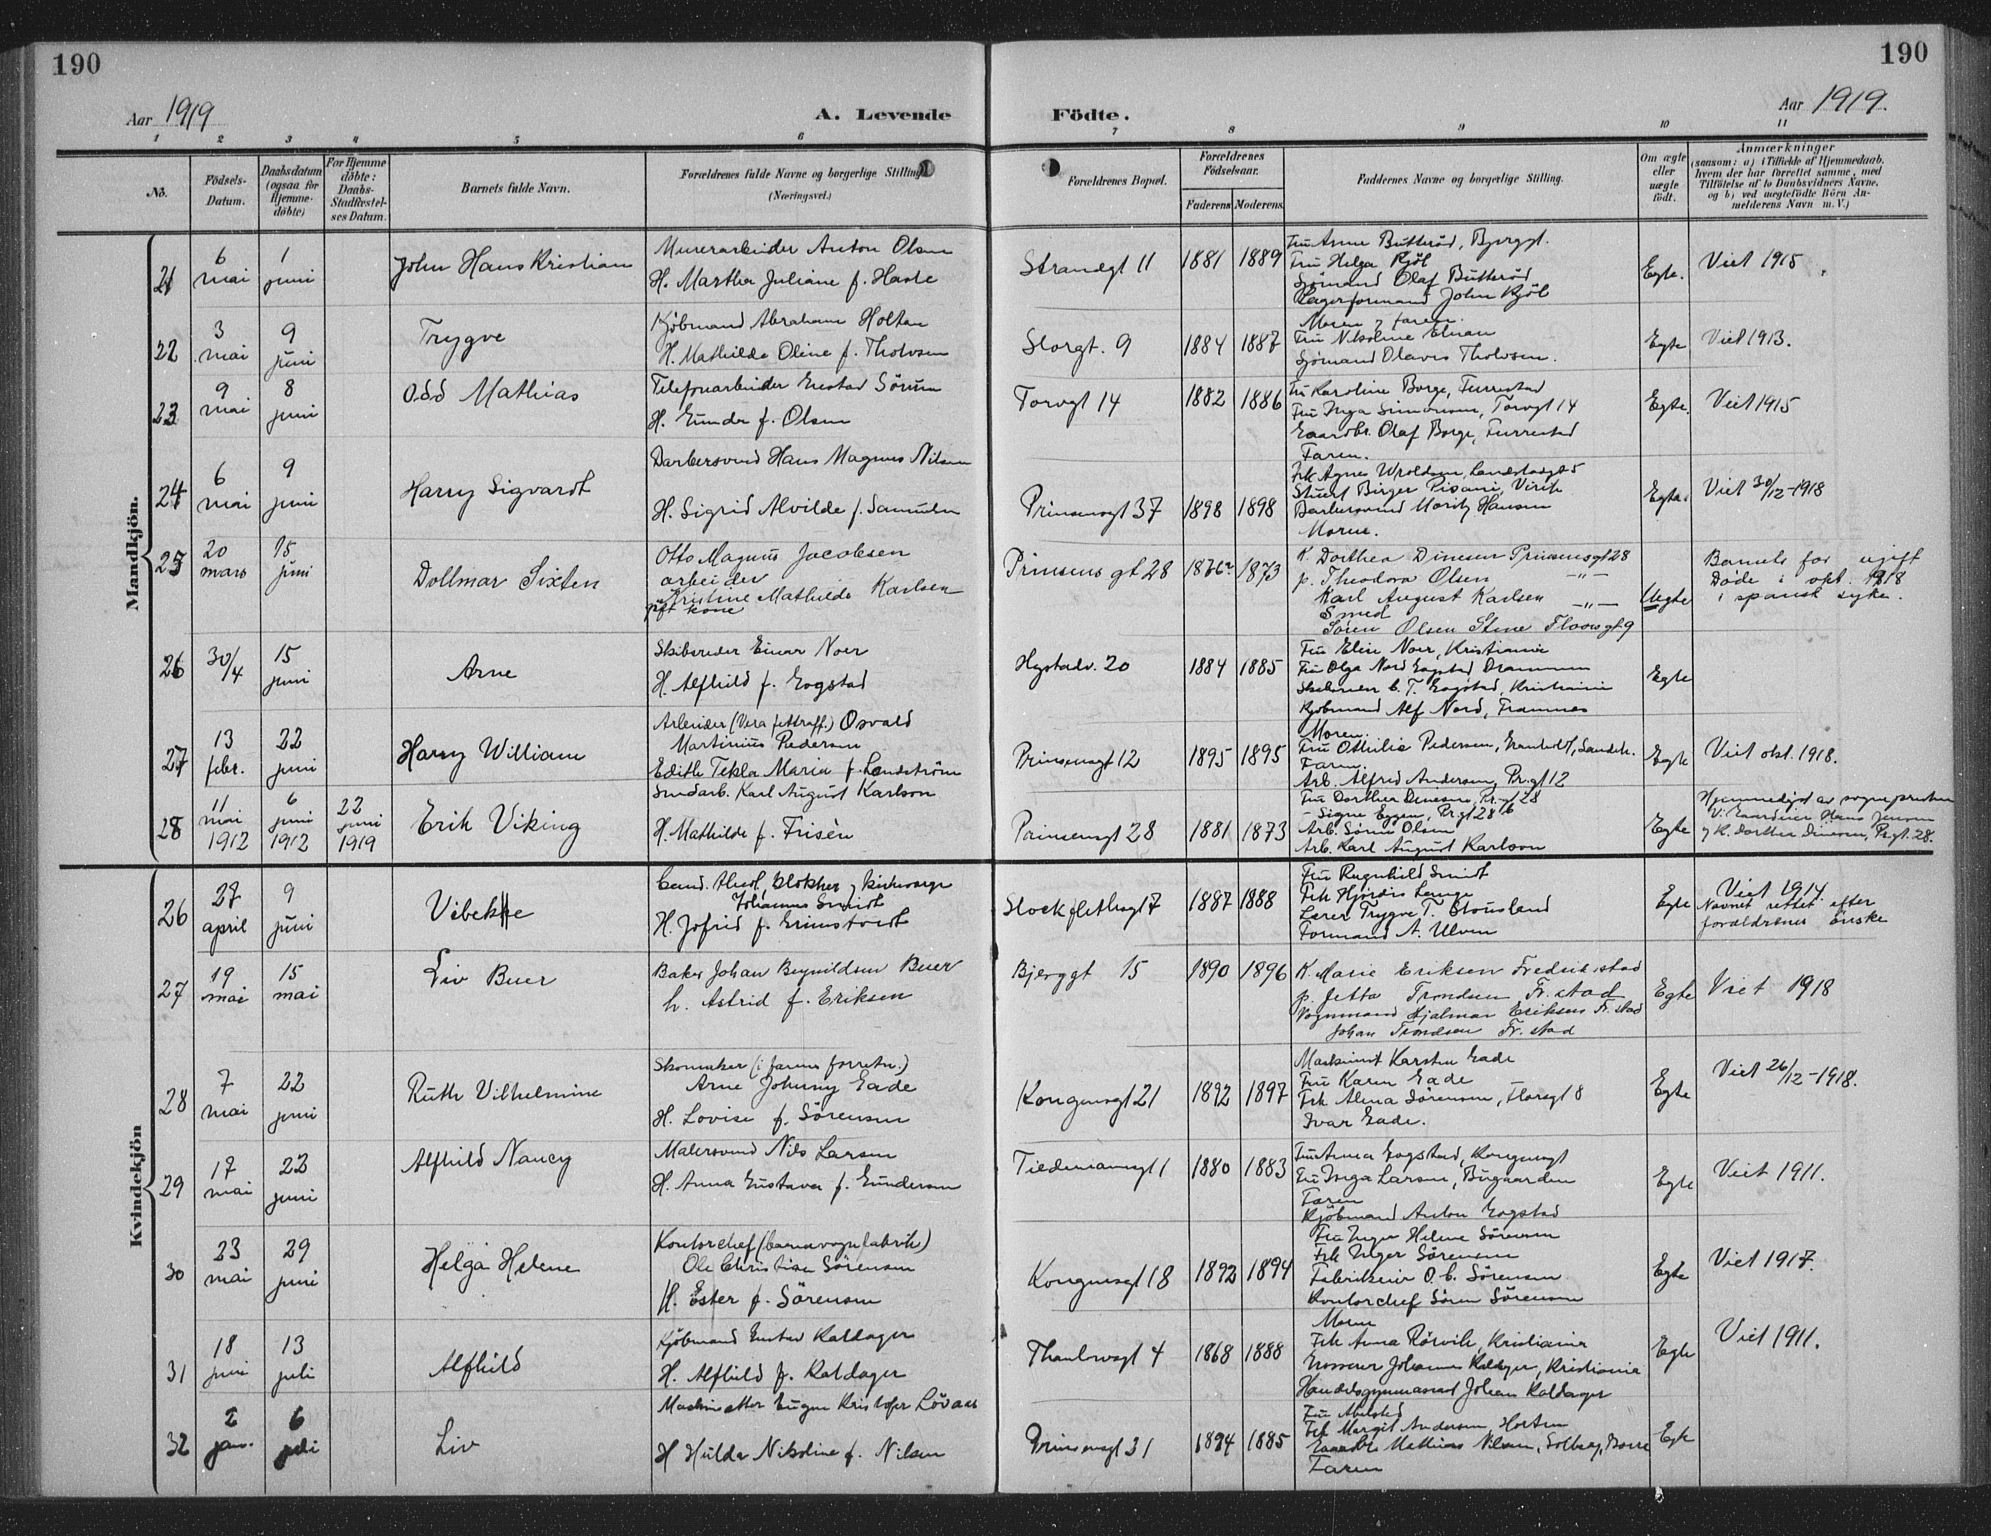 190
190
Aar 1919
A. Levende
Födte.
Aar 1919.
1 2 3 4 5 6 7 8 9 10 11
No.
Födsels-Datum.
Daabsdatum (ogsaa for Hjemmedöbte)
For Hjemmedöbte: Daabs-Stadfæstelses Datum.
Barnets fulde Navn.
Forældrenes fulde Navne og borgerlige Stilling (Næringsvei.)
Forældrenes Bopæl.
Forældrenes Födselsaar.
Faderens Moderens
Faddernes Navne og borgerlige Stilling.
Om ægte eller uægte födt.
Anmærkninger
(saasom: a) i Tilfælde af Hjemmedaab, hvem der har forrettet samme, med Tilföielse af to Daabsvidners Navne, og b) ved uægtefödte Börn Anmelderens Navn m. V.)
Mandkjön.
21 6 mai 1 juni John Hans Kristian
Murerarbeider Anton Olsen
H. Martha Juliane f. Haste
Strandgt 11 1881 1889
Fru Anne Butteröd, Bjerggt.
Fru Helga Kjöl
Sjömand Olaf Butteröd
Lagerformand John Kjöl
Egte. Viet 1915
22 3 mai 9 juni Trygve
Kjöbmand Abraham Holtan
H. Mathilde Oline f. Tholvsen
Storgt. 9 1884 1887
Moren og faren.
Fru Nikoline
Sjömand Olaves Tholvsen.
Egte Viet 1913.
23 9 mai 8 juni Odd Mathias
Telefonarbeider Gustav Sörum
H. Gunda f. Olsen
Torvgt 14 1882 1886
Fru Karoline Borge, Furrestad
Fru Inga Simonsen, Torvgt 14
Gaardbr. Olaf Borge, Furrestad
Faren.
Egte. Viet 1915
24 6 mai 9 juni Harry Sigvardt
Barbersvend Hans Magnus Nilsen
H. Sigrid Alvilde f. Samuelsen
Prinsensgt 37 1898 1898
Frk Agnes Wroldsen, Landstadgt 5
Stuert Birger Pisani, Virik
Barbersvend Moritz Hansen
Moren.
Egte. Viet 30/12-1918
25 20 mars 15 juni Dollmar Sixten
Otto Magnus Jacobsen
arbeider
Kristine Mathilde Karlsen
gift kone
Prinsens gt 28 1876 1873
K. Dorthea Dinesen Prinsensgt 28
p. Theodora Olsen —"—
Karl August Karlsen —"—
Smed
Sören Olsen Stene Floors gt. 9
Uegte
Barnets far ugift
Døde i okt. 1918
i spansk syke.
26 30/4 15 juni Arne
Skibsreder Einar Noer
H. Alfhild f. Gogstad
Hystadv. 20 1884 1885
Fru Elin Noer, Kristiania
Fru Olga Nord Gogstad Drammen
Skibsreder C. T. Gogstad, Kristiania
Kjöbmand Alf Nord, Framnes
Egte
27 13 febr. 22 juni Harry William
Arbeider (Vera fettraff.) Osvald
Martinius Pedersen
Edith Tekla Maria f. Lundström
Prinsensgt 12 1895 1895
Moren.
Fru Othilie Pedersen, Sandeh.
Faren.
Arb. Alfred Andersen, Pr.gt 12
Egte Viet okt. 1918.
28 11 mai 1912 6 juni 1912 22 juni 1919 Erik Viking
Smedarb. Karl August Karlson
H. Mathilde f. Frisèn
Prinsensgt 28 1881 1873
Fru Dorthea Dinesen, Pr.gt 28
- Signe Essen, Pr.gt 28b
Arb. Sören Olsen
Arb. Karl August Karlson
Egte
Hjemmedöpt av sognepresten
V. Hans Jensen
og K. Dorthea Dinesen, Pr.gt. 28.
Kvindekjön
26 27 april 9 juni Vibekke
Cand. theol, klokker og kirkeverge
Johannes Smidt
H. Jofrid f. Grimstvedt
Stockflethsgt 7 1887 1888
Fru Ragnhild Smidt
Frk Hjördis Lange
Lærer Trygve T. Stousland
Formand A. Ulven
Egte Viet 1914
Navnet rettet efter
forældrenes önske
27 19 mai 15 mai Liv Buer
Baker Johan Beynildsen Buer
h. Astrid f. Eriksen
Bjerggt 15 1890 1896
K. Marie Eriksen Fredrikstad
p. Jetta Trondsen Fr. stad
Vognmand Hjalmar Eriksen Fr. stad
Johan Trondsen Fr. stad
Egte Viet 1918
28 7 mai 22 juni Ruth Vilhelmine
Skomaker (i farens forretn.)
Arne Johnny Gade
H. Lovise f. Sörensen
Kongensgt 21 1892 1897
Maskinist Karsten Gade
Fru Karen Gade
Frk Alma Sörensen, Floorsgt 8
Ivar Gade.
Egte Viet 26/12-1918.
29 17 mai 22 juni Alfhild Nancy
Malersvend Nils Larsen
H. Anna Gustava f. Gundersen
Tiedemannsgt 1 1880 1883
Fru Anna Gogstad, Kongensgt
Fru Inga Larsen, Bugaarden
Faren
Kjöbmand Anton Gogstad
Egte Viet 1911.
30 23 mai 29 juni Helga Helene
Kontorchef (barnevognfabrik)
Ole Christian Sörensen
H. Ester f. Sörensen
Kongensgt 18 1892 1894
Fru Inger Helene Sörensen
Frk Inger Sörensen
Fabrikeier O. C. Sörensen
Kontorchef Sören Sörensen
Egte Viet 1917.
31 18 juni 13 juli Alfhild
Kjöbmand Gustav Kaldager
H. Alfhild f. Kaldager
Thaulowsgt 4 1868 1888
Moren
Frk Anna Rörvik, Kristiania
Grosserer Johannes Kaldager, Kristiania
Handelsgymnasiast Johan Kaldager
Egte Viet 1911.
32 2 jan. 6 juli Liv
Maskinsetter Eugen Kristofer Lövaas
H Hulda Nikoline f. Nilsen
Prinsensgt 31 1894 1885
Fru Abelsted
Frk Margit Andersen, Horten
Gaardbr. Mathias Nilsen, Solberg, Borre
Faren
Egte